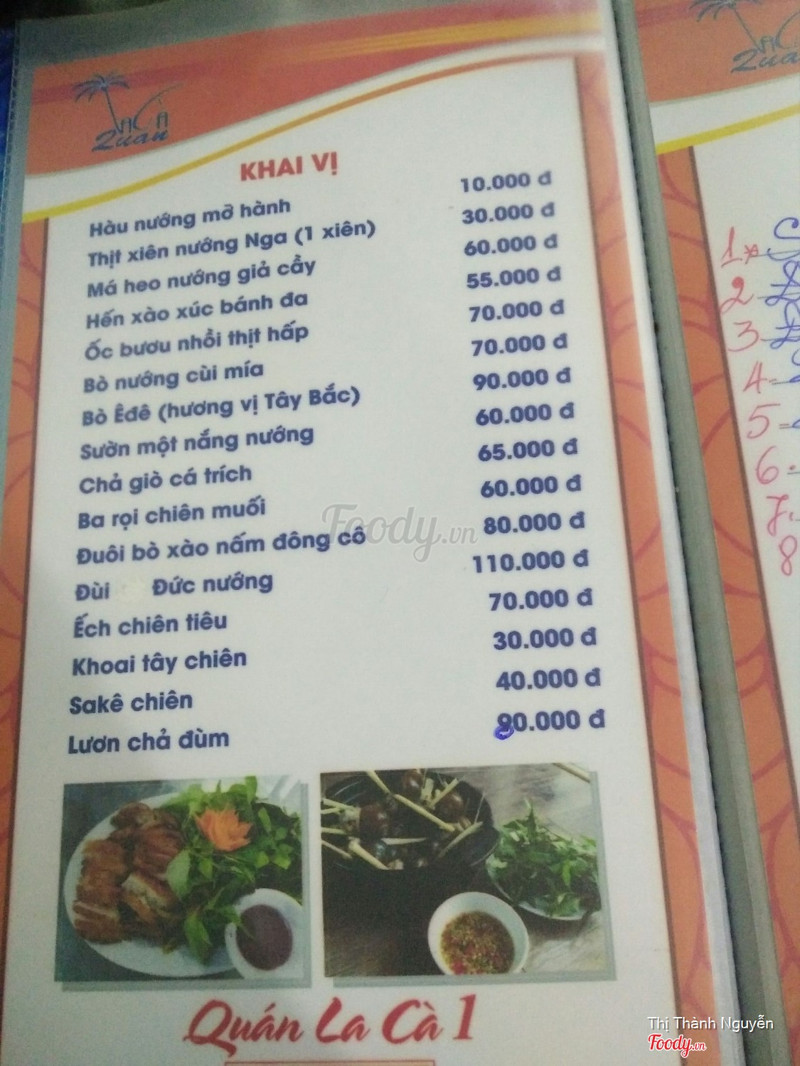 La Cà
Quán
KHAI VỊ
Hàu nướng mỡ hành 10.000 đ
Thịt xiên nướng Nga (1 xiên) 30.000 đ
Má heo nướng giả cầy 60.000 đ
Hến xào xúc bánh đa 55.000 đ
Ốc bươu nhồi thịt hấp 70.000 đ
Bò nướng cùi mía 70.000 đ
Bò Êđê (hương vị Tây Bắc) 90.000 đ
Sườn một nắng nướng 60.000 đ
Chả giò cá trích 65.000 đ
Ba rọi chiên muối 60.000 đ
Đuôi bò xào nấm đông cô 80.000 đ
Đùi Đức nướng 110.000 đ
Ếch chiên tiêu 70.000 đ
Khoai tây chiên 30.000 đ
Sakê chiên 40.000 đ
Lươn chả đùm 90.000 đ
Foody.vn
Quán La Cà 1
1
2
3
4
5
6
7
8
Thị Thành Nguyễn
Foody.vn